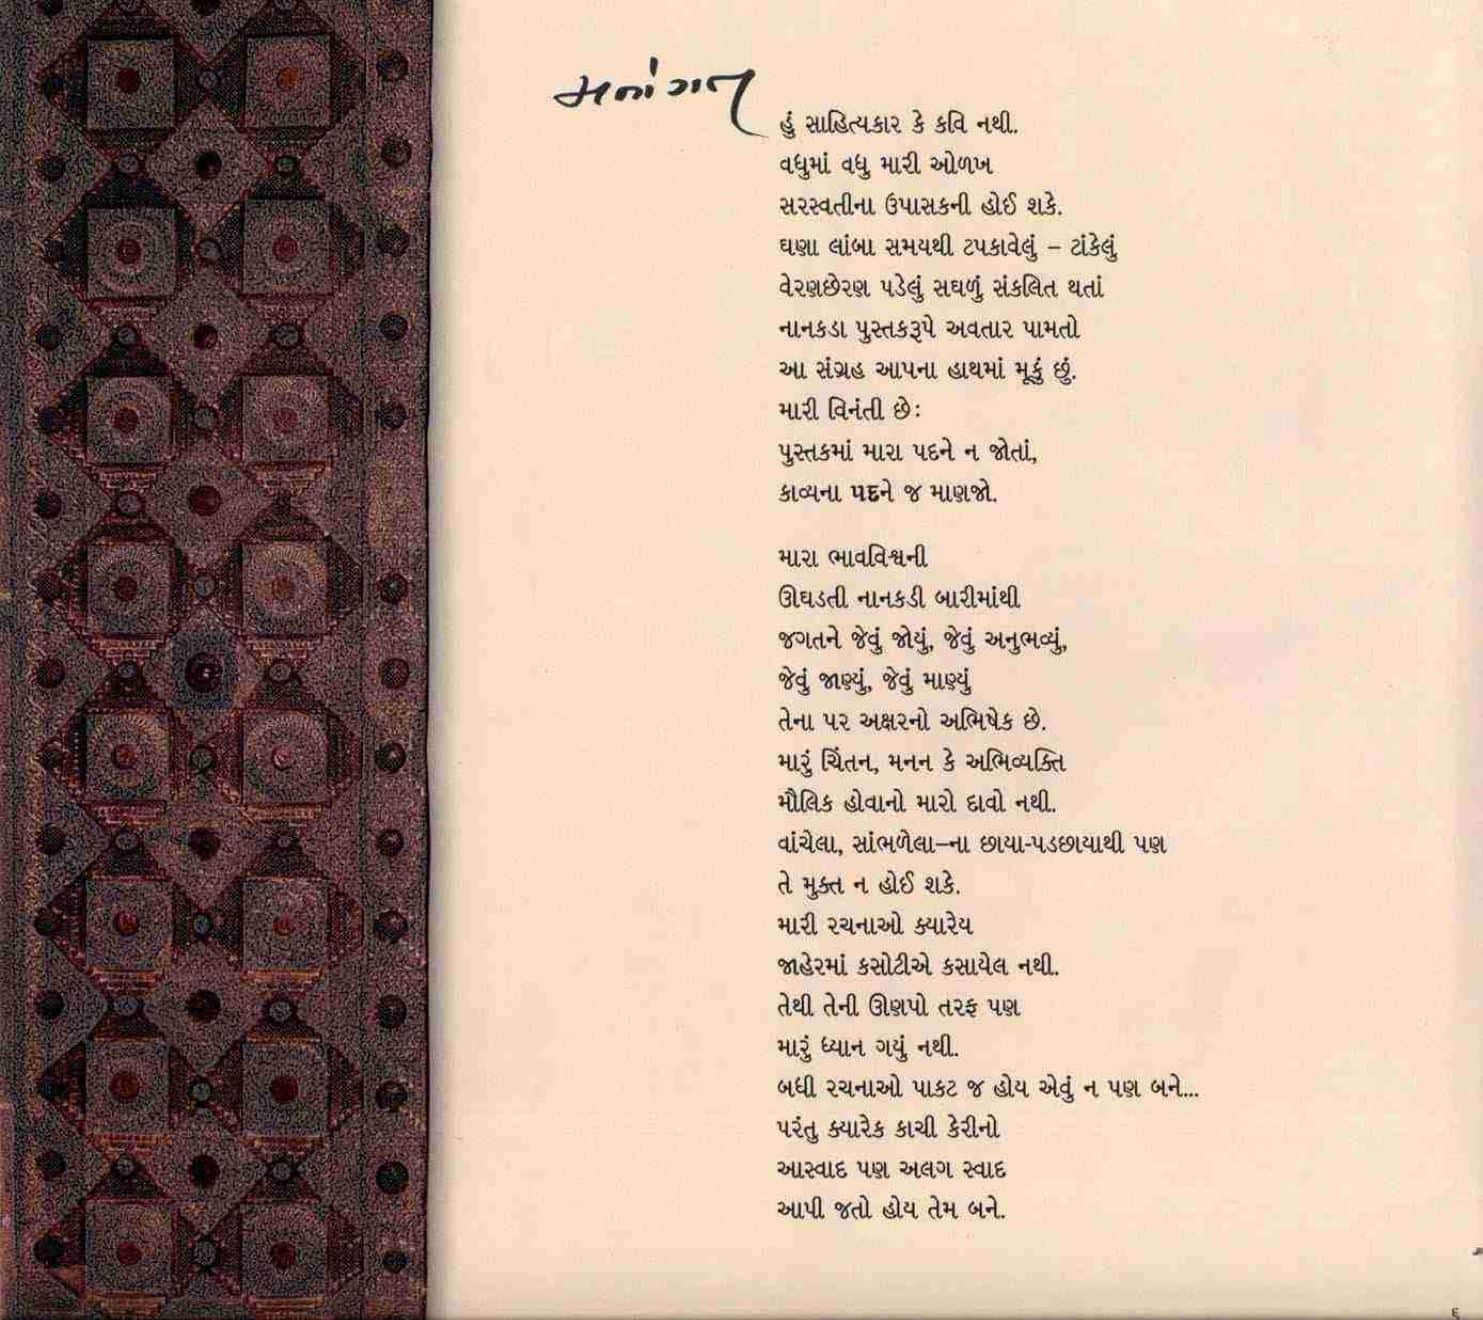 મનોગત
હું સાહિત્યકાર કે કવિ નથી.
વધુમાં વધુ મારી ઓળખ
સરસ્વતીના ઉપાસકની હોઈ શકે.
ઘણા લાંબા સમયથી ટપકાવેલું – ટાંકેલું
વેરણછેરણ પડેલું સઘળું સંકલિત થતાં
નાનકડા પુસ્તકરૂપે અવતાર પામતો
આ સંગ્રહ આપના હાથમાં મૂકું છું.
મારી વિનંતી છેઃ
પુસ્તકમાં મારા પદને ન જોતાં,
કાવ્યના પદને જ માણજો.
મારા ભાવવિશ્વની
ઊઘડતી નાનકડી બારીમાંથી
જગતને જેવું જોયું, જેવું અનુભવ્યું,
જેવું જાણ્યું, જેવું માણ્યું
તેના પર અક્ષરનો અભિષેક છે.
મારું ચિંતન, મનન કે અભિવ્યક્તિ
મૌલિક હોવાનો મારો દાવો નથી.
વાંચેલા, સાંભળેલા–ના છાયા-પડછાયાથી પણ
તે મુક્ત ન હોઈ શકે.
મારી રચનાઓ ક્યારેય
જાહેરમાં કસોટીએ કસાયેલ નથી.
તેથી તેની ઊણપો તરફ પણ
મારું ધ્યાન ગયું નથી.
બધી રચનાઓ પાકટ જ હોય એવું ન પણ બને...
પરંતુ ક્યારેક કાચી કેરીનો
આસ્વાદ પણ અલગ સ્વાદ
આપી જતો હોય તેમ બને.
૬